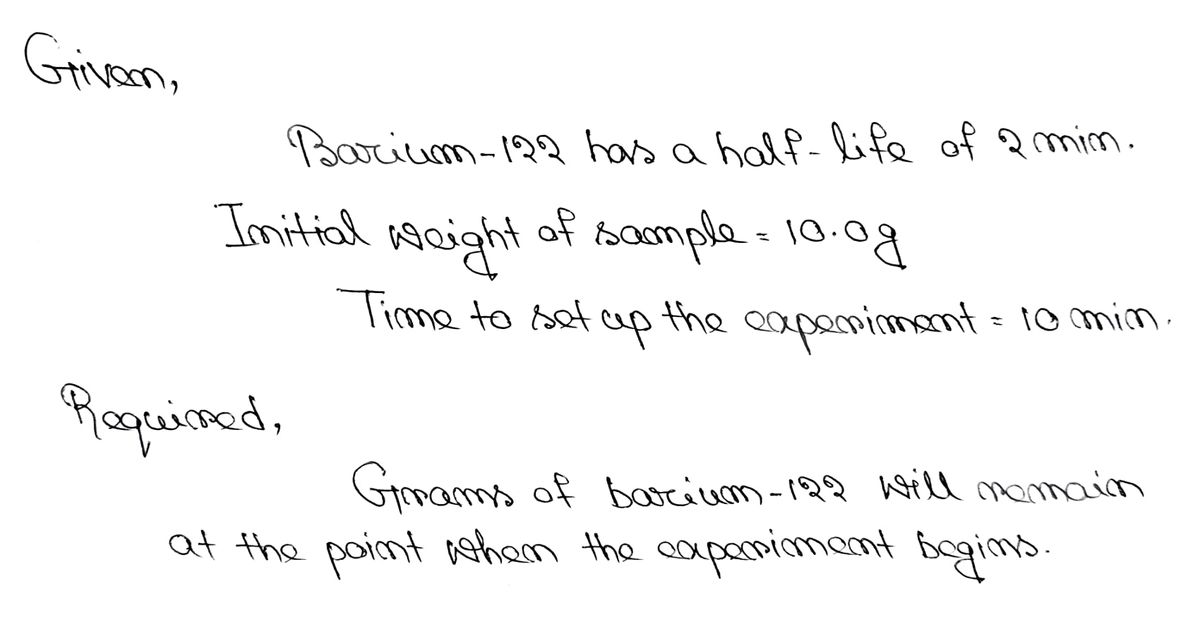 Given,
Barium-122 has a half-life of 2 min.
Initial weight of sample = 10.0g
Time to set up the experiment = 10 min.
Required,
Grams of barium-122 will remain
at the point when the experiment begins.